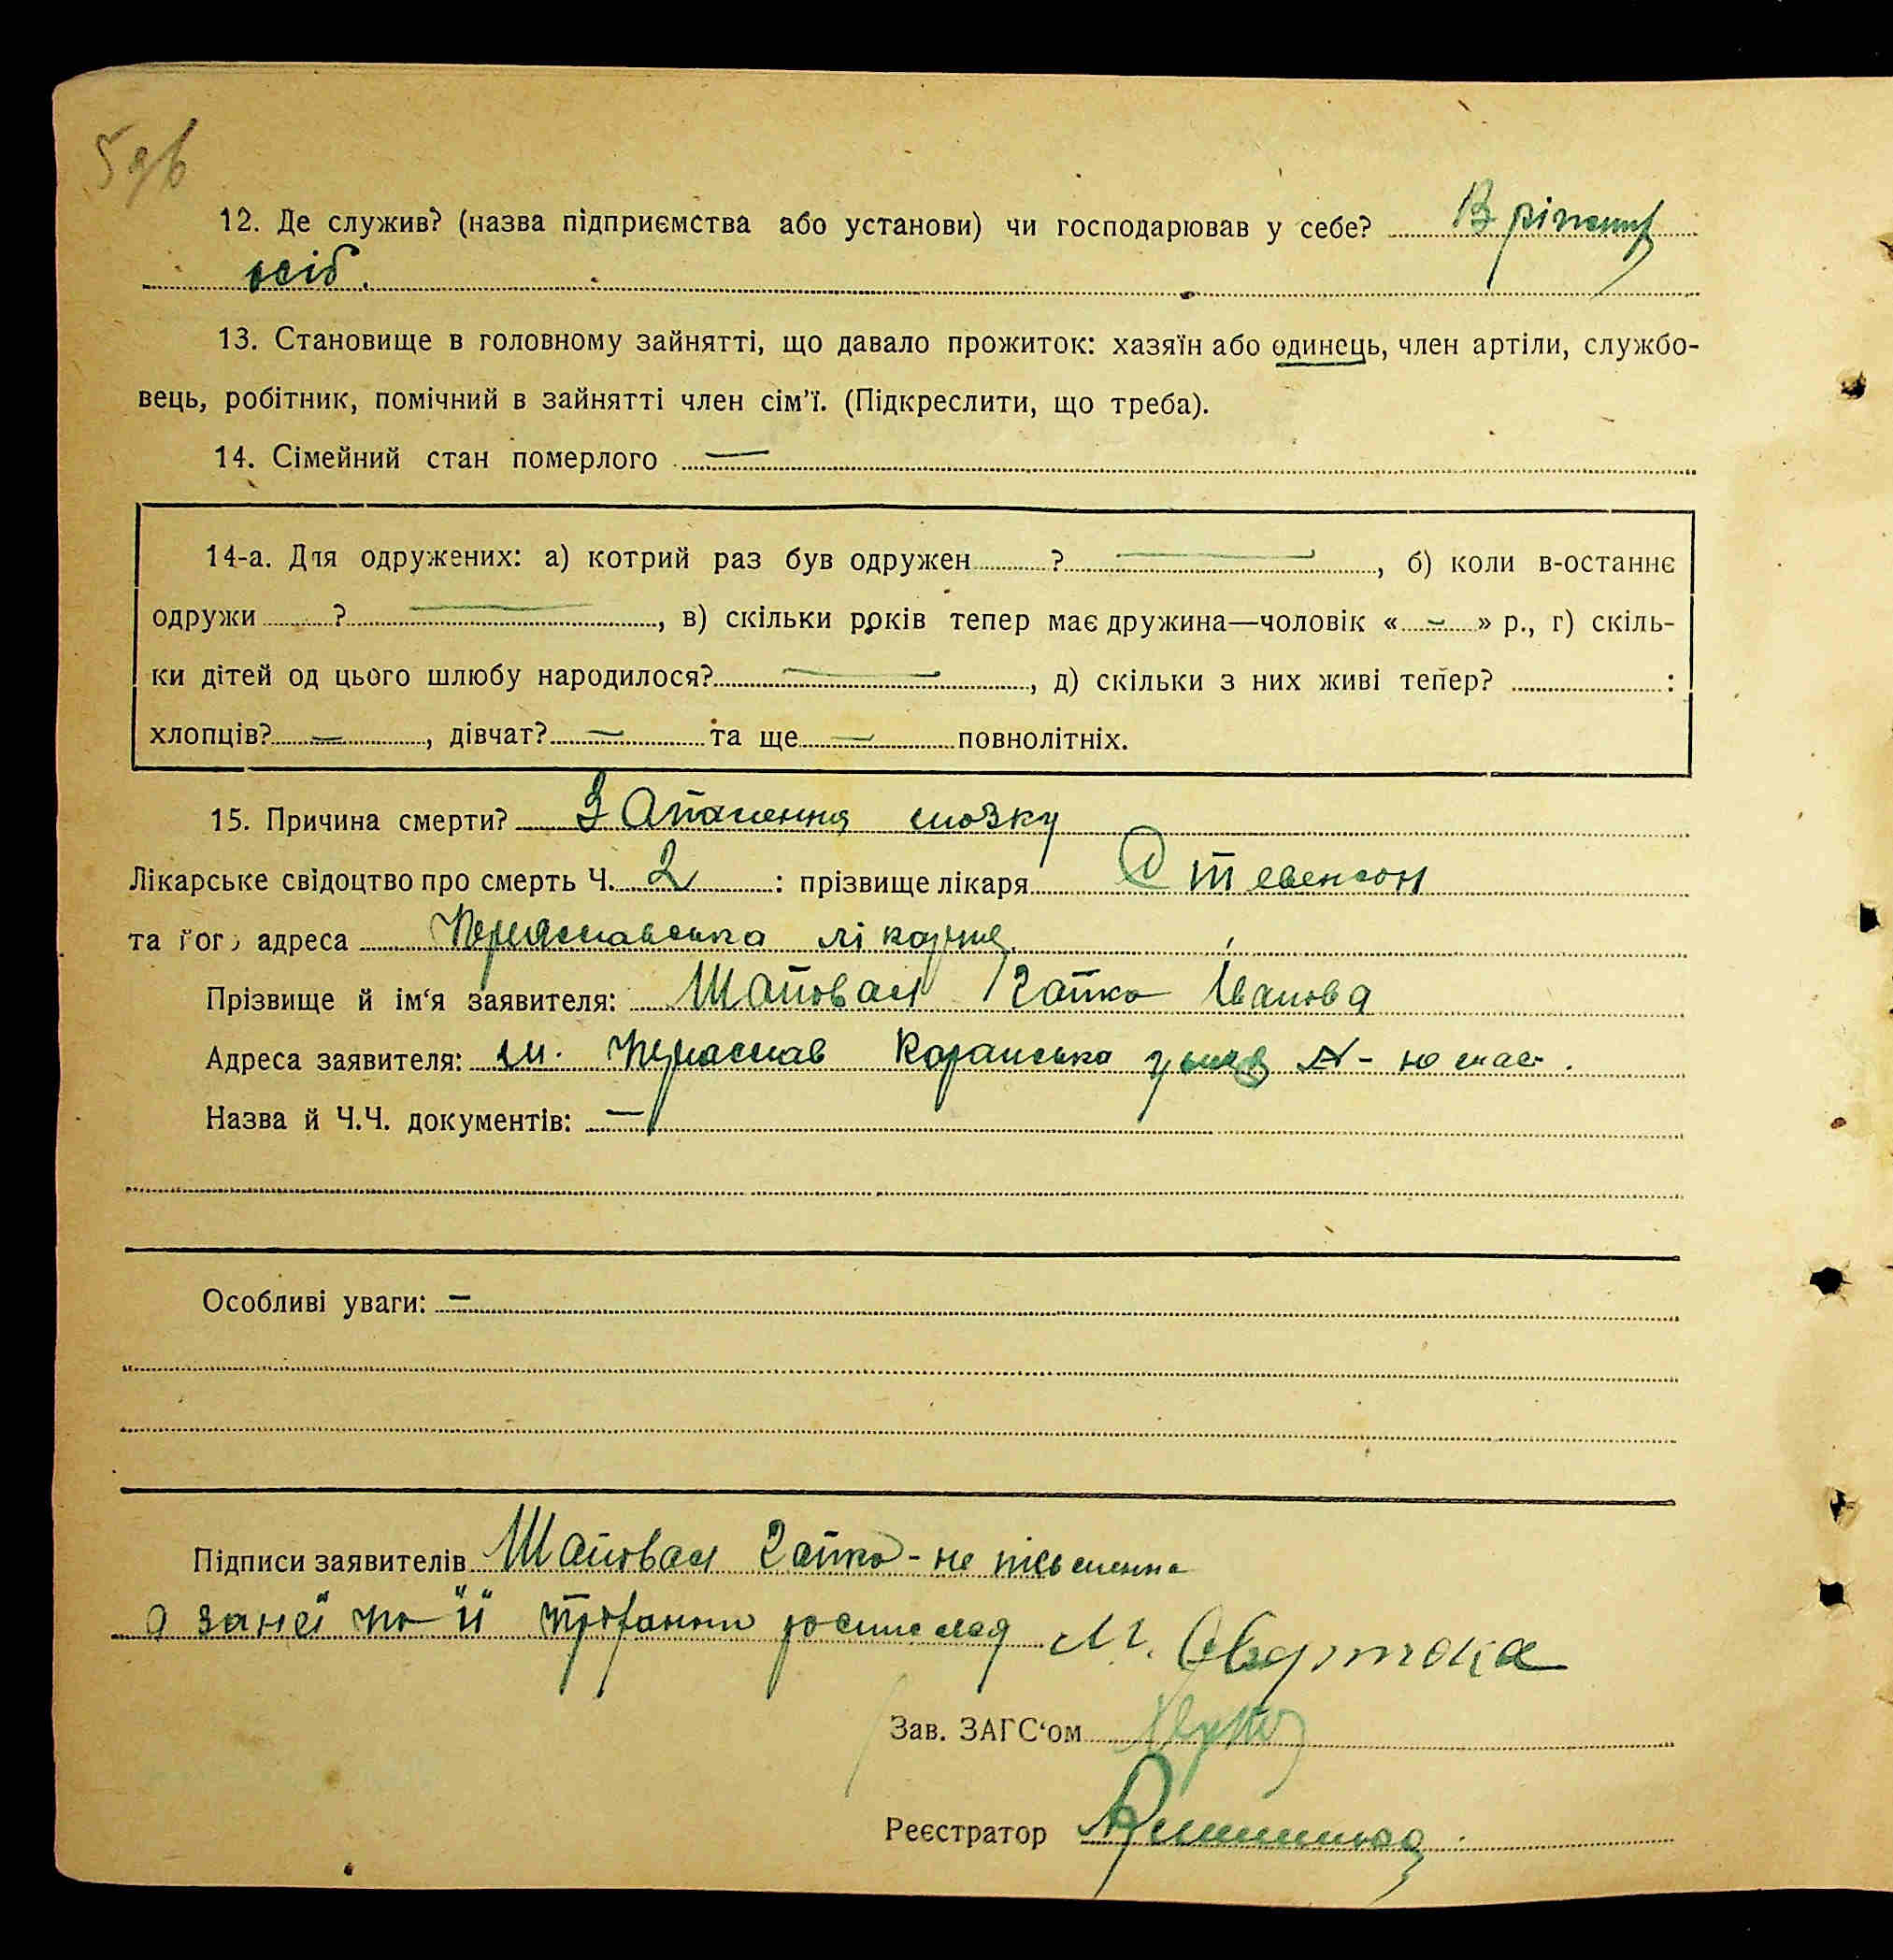 12. Де служив? (назва підприємства або установи) чи господарював у себе? В різних
осіб.
13. Становище в головному зайнятті, що давало прожиток: хазяїн або одинець, член артіли, службо-
вець, робітник, помічний в зайнятті член сім'ї. (Підкреслити, що треба).
14. Сімейний стан померлого —
14-а. Для одружених: а) котрий раз був одружен ? —, б) коли в-останнє
одружи ? —, в) скільки років тепер має дружина—чоловік « – » р., г) скіль-
ки дітей од цього шлюбу народилося? —, д) скільки з них живі тепер? :
хлопців? —, дівчат? — та ще — повнолітніх.
15. Причина смерти? Запалення мозку
Лікарське свідоцтво про смерть Ч. 2 : прізвище лікаря Стевенсон
та його адреса Переяславська лікарня
Прізвище й ім‘я заявителя: Шаповал Гапка Іванова
Адреса заявителя: м. Переяслав Каранська №- немає.
Назва й Ч.Ч. документів: —
Особливі уваги: –
Підписи заявителів Шаповал Гапка - не письменна
а за неї по її проханню росписався
Зав. ЗАГС‘ом
Реєстратор